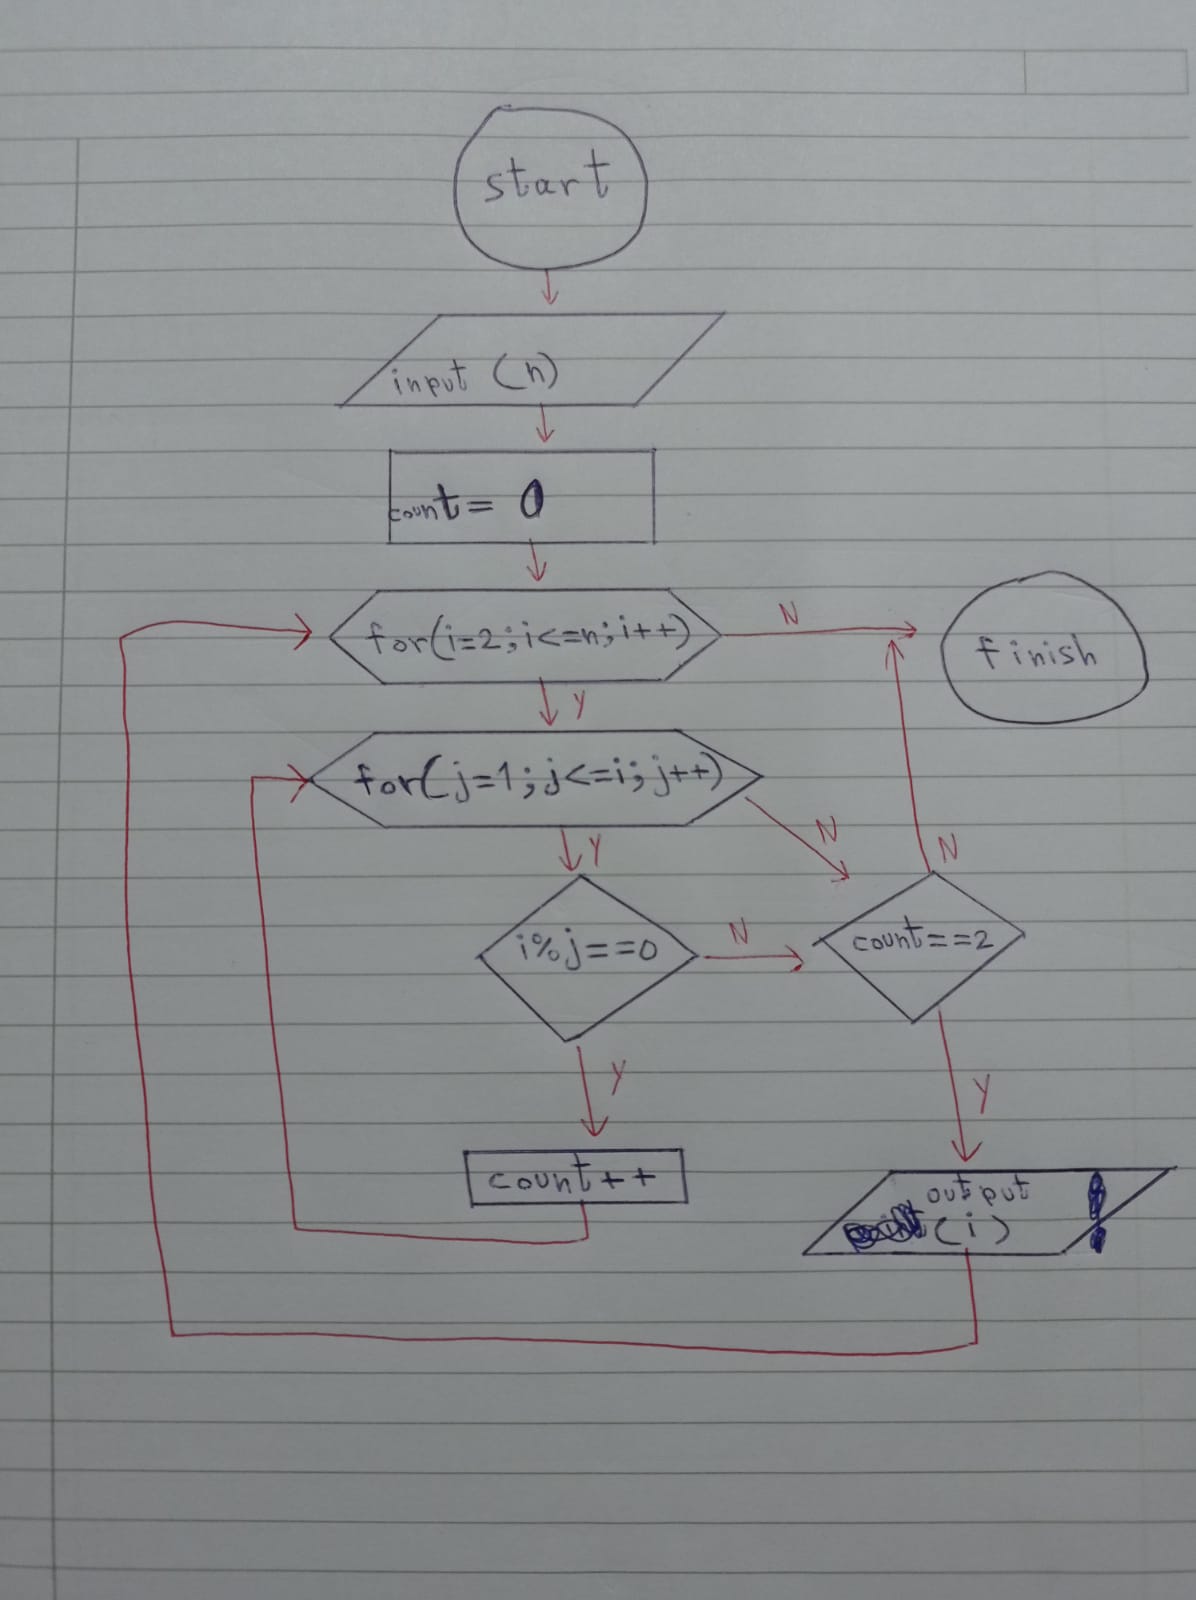 start
input (n)
count= 0
for(i=2;i<=n;i++)
N
finish
Y
for(j=1;j<=i;j++)
N
Y
N
i%j==0
N
count==2
Y
Y
count++
output
(i)